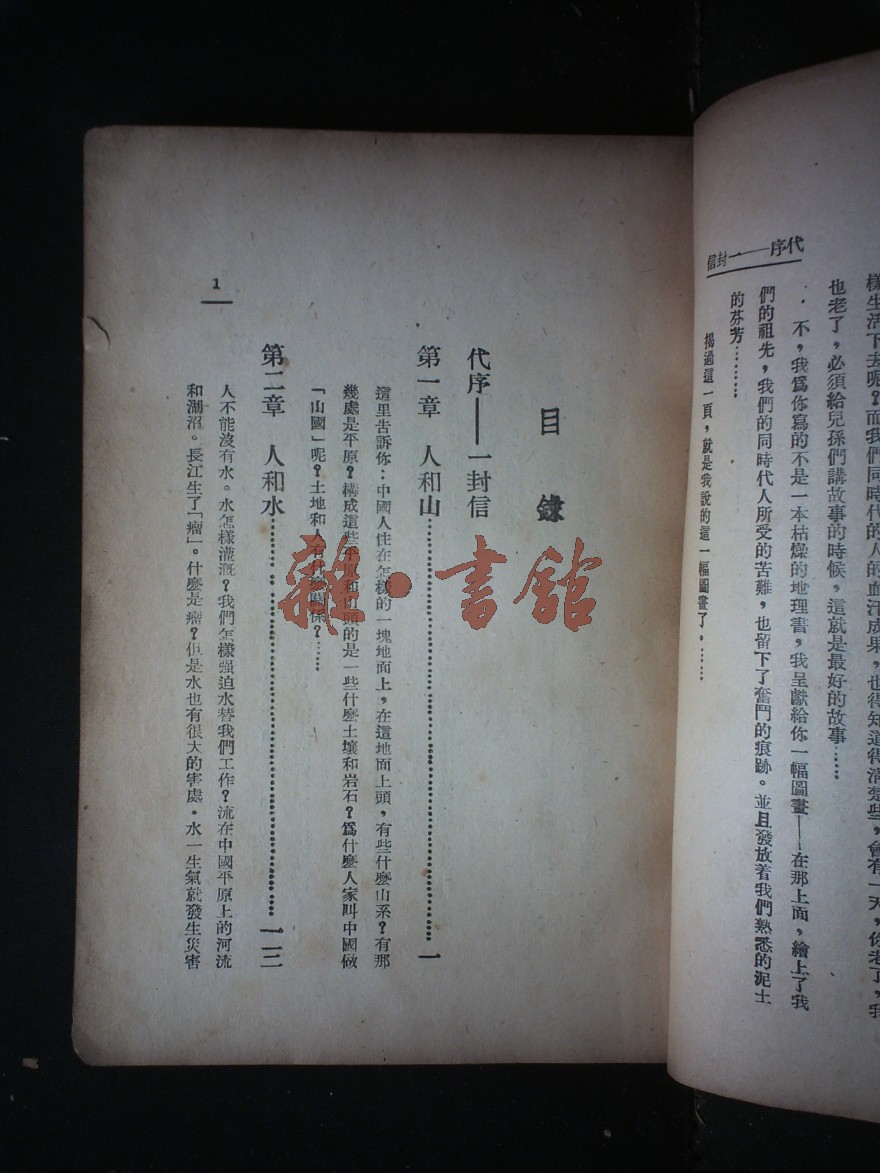 樣生活下去呢?而我們同時代的人的血汗成果,也得知道得清楚些,會有一天,你老了,我
也老了,必須給兒孫們講故事的時候,這就是最好的故事……
不,我爲你寫的不是一本枯燥的地理書,我呈獻給你一幅圖畫——在那上面,繪上了我
們的祖先,我們的同時代人所受的苦難,也留下了奮鬥的痕跡。並且發放着我們熟悉的泥土
的芬芳………
揭過這一頁,就是我說的這一幅圖畫了。……
代序——一封信
目錄
代序——一封信
第一章 人和山……………………………………一
這里告訴你:中國人住在怎樣的一塊地面上,在這地面上頭,有些什麼山系?有那
幾處是平原?構成這些平原和山頭的是一些什麼土壤和岩石?爲什麼人家叫中國做
「山國」呢?土地和人有什麼關係?……
第二章 人和水……………………………………一三
人不能沒有水。水怎樣灌漑?我們怎樣强迫水替我們工作?流在中國平原上的河流
和湖沼。長江生了「瘤」。什麼是瘤?但是水也有很大的害處。水一生氣就發生災害
1
雜·書館